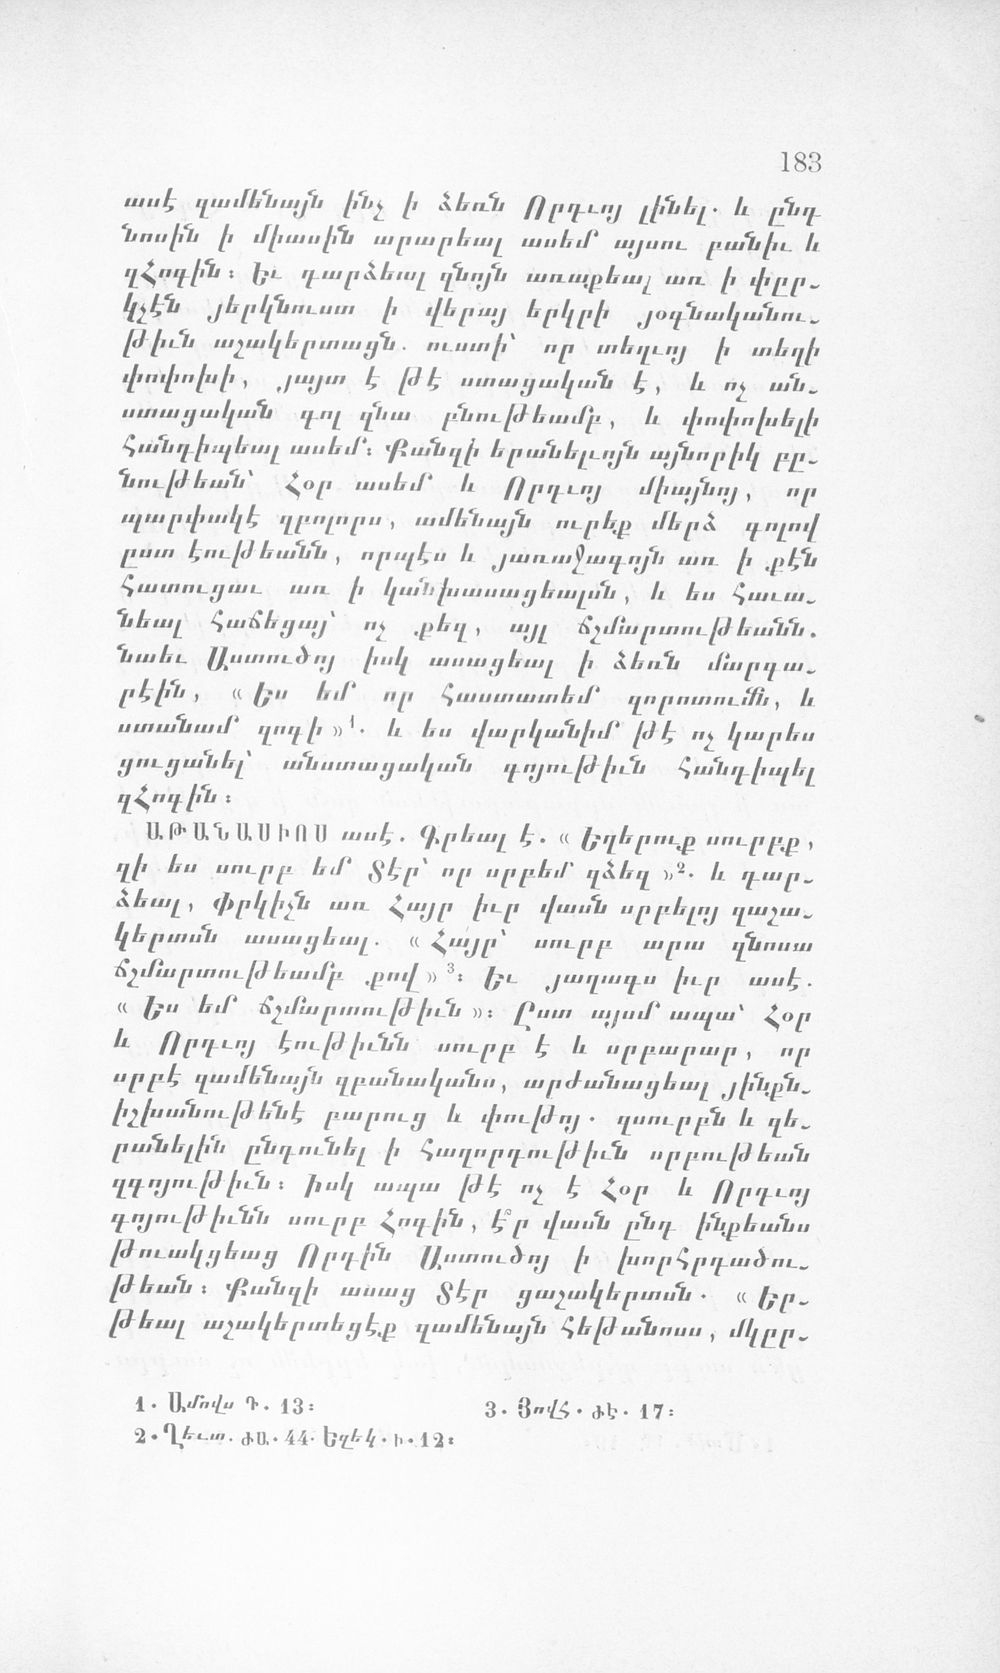 183
ասէ զամենայն ինչ ի ձեռն Որդւոյ լինել. և ընդ
նոսին ի միասին արարեալ ասեմ այսու բանիւ և
զՀոգին։ Եւ դարձեալ զնոյն առաքեալ առ ի փըր֊
կչէն յերկնուստ ի վերայ երկրի յօգնականու֊
թիւն աշակերտացն. ուստի՝ որ տեղւոյ ի տեղի
փոփոխի, յայտ է թէ ստացական է, և ոչ ան֊
ստացական գոլ զնա բնութեամբ, և փոփոխելի
հանդիպեալ ասեմ։ Քանզի երանելւոյն այնորիկ բը֊
նութեան՝ Հօր ասեմ և Որդւոյ միայնոյ, որ
պարփակէ զբոլորս, ամենայն ուրեք մերձ գոլով
ըստ էութեանն, որպէս և յառաջագոյն առ ի քէն
հատուցաւ առ ի կանխասացեալսն, և ես հաւա֊
նեալ հաճեցայ՝ ոչ քեզ, այլ ճշմարտութեանն.
նաեւ Աստուծոյ իսկ ասացեալ ի ձեռն մարգա֊
րէին, « Ես եմ որ հաստատեմ զորոտումն, և
ստանամ զոգի »1. և ես վարկանիմ թէ ոչ կարես
ցուցանել՝ անստացական գոյութիւն հանդիպել
զՀոգին։
ԱԹԱՆԱՍԻՈՍ ասէ. Գրեալ է. « Եղերուք սուրբք,
զի ես սուրբ եմ Տէր՝ որ սրբեմ զձեզ »2. և դար֊
ձեալ, Փրկիչն առ Հայր իւր վասն սրբելոյ զաշա֊
կերտսն ասացեալ. « Հայր՝ սուրբ արա զնոսա
ճշմարտութեամբ քով »3։ Եւ յաղագս իւր ասէ.
« Ես եմ ճշմարտութիւն »։ Ըստ այսմ ապա՝ Հօր
և Որդւոյ էութիւնն սուրբ է և սրբարար, որ
սրբէ զամենայն զբանականս, արժանացեալ յինքն֊
իշխանութենէ բարուց և փութոյ. զսուրբն և զե֊
րանելին ընդունել ի հաղորդութիւն սրբութեան
զգոյութիւն։ Իսկ ապա թէ ոչ է Հօր և Որդւոյ
գոյութիւնն սուրբ Հոգին, է՞ր վասն ընդ ինքեանս
թուակցեաց Որդին Աստուծոյ ի խորհրդածու֊
թեան։ Քանզի ասաց Տէր ցաշակերտսն. « Եր֊
թեալ աշակերտեցէք զամենայն հեթանոսս, մկըր֊
1. Ամովս Դ. 13։
2. Ղեւտ. ԺԱ. 44. Եզեկ. Ի. 12։
3. Յովհ. ԺԷ. 17։